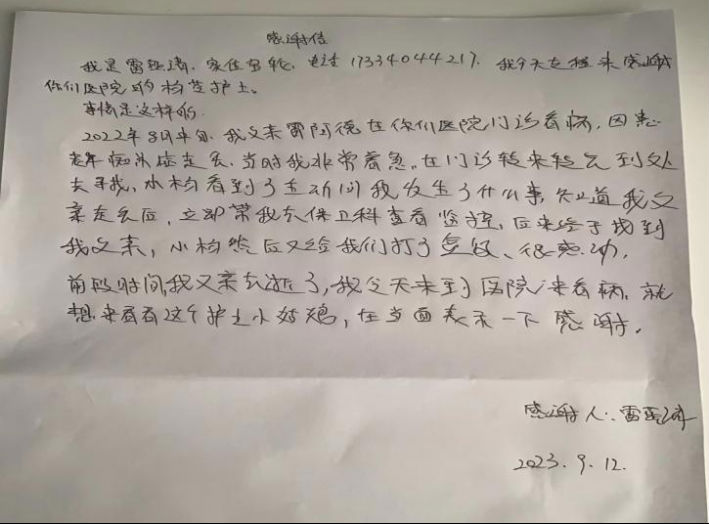 感谢信
我是雷亚清，家住宝轮，电话17334044217. 我今天专程来感谢
你们医院的杓芝护士。
事情是这样的.
2022年8月中旬，我父亲雷阿德在你们医院门诊看病，因患
老年痴呆症走丢，当时我非常着急，在门诊转来转去到处
去寻找，小杓看到了主动问我发生了什么事，知道我父
亲走丢后，立即带我去保卫科查看监控，后来终于找到
我父亲，小杓然后又给我们打了，很感动。
前段时间我父亲去逝了，我今天来到医院来看病，就
想来看看这个护士小姑娘，在当面表示一下感谢。
感谢人：雷亚清
2023.9.12.